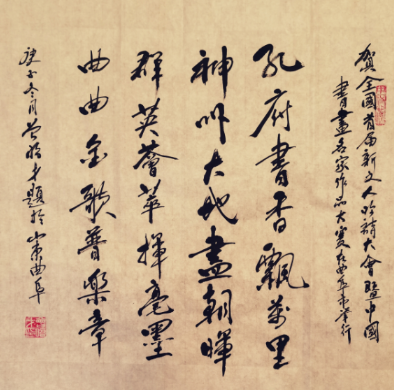 贺全國首届新文人吟诗大會暨中國
書畫名家作品大展在曲阜市举行
孔府書香飄萬里
神州大地盡朝暉
群英薈萃揮亮墨
曲曲金歌普樂章
庚子冬月 题於山東曲阜